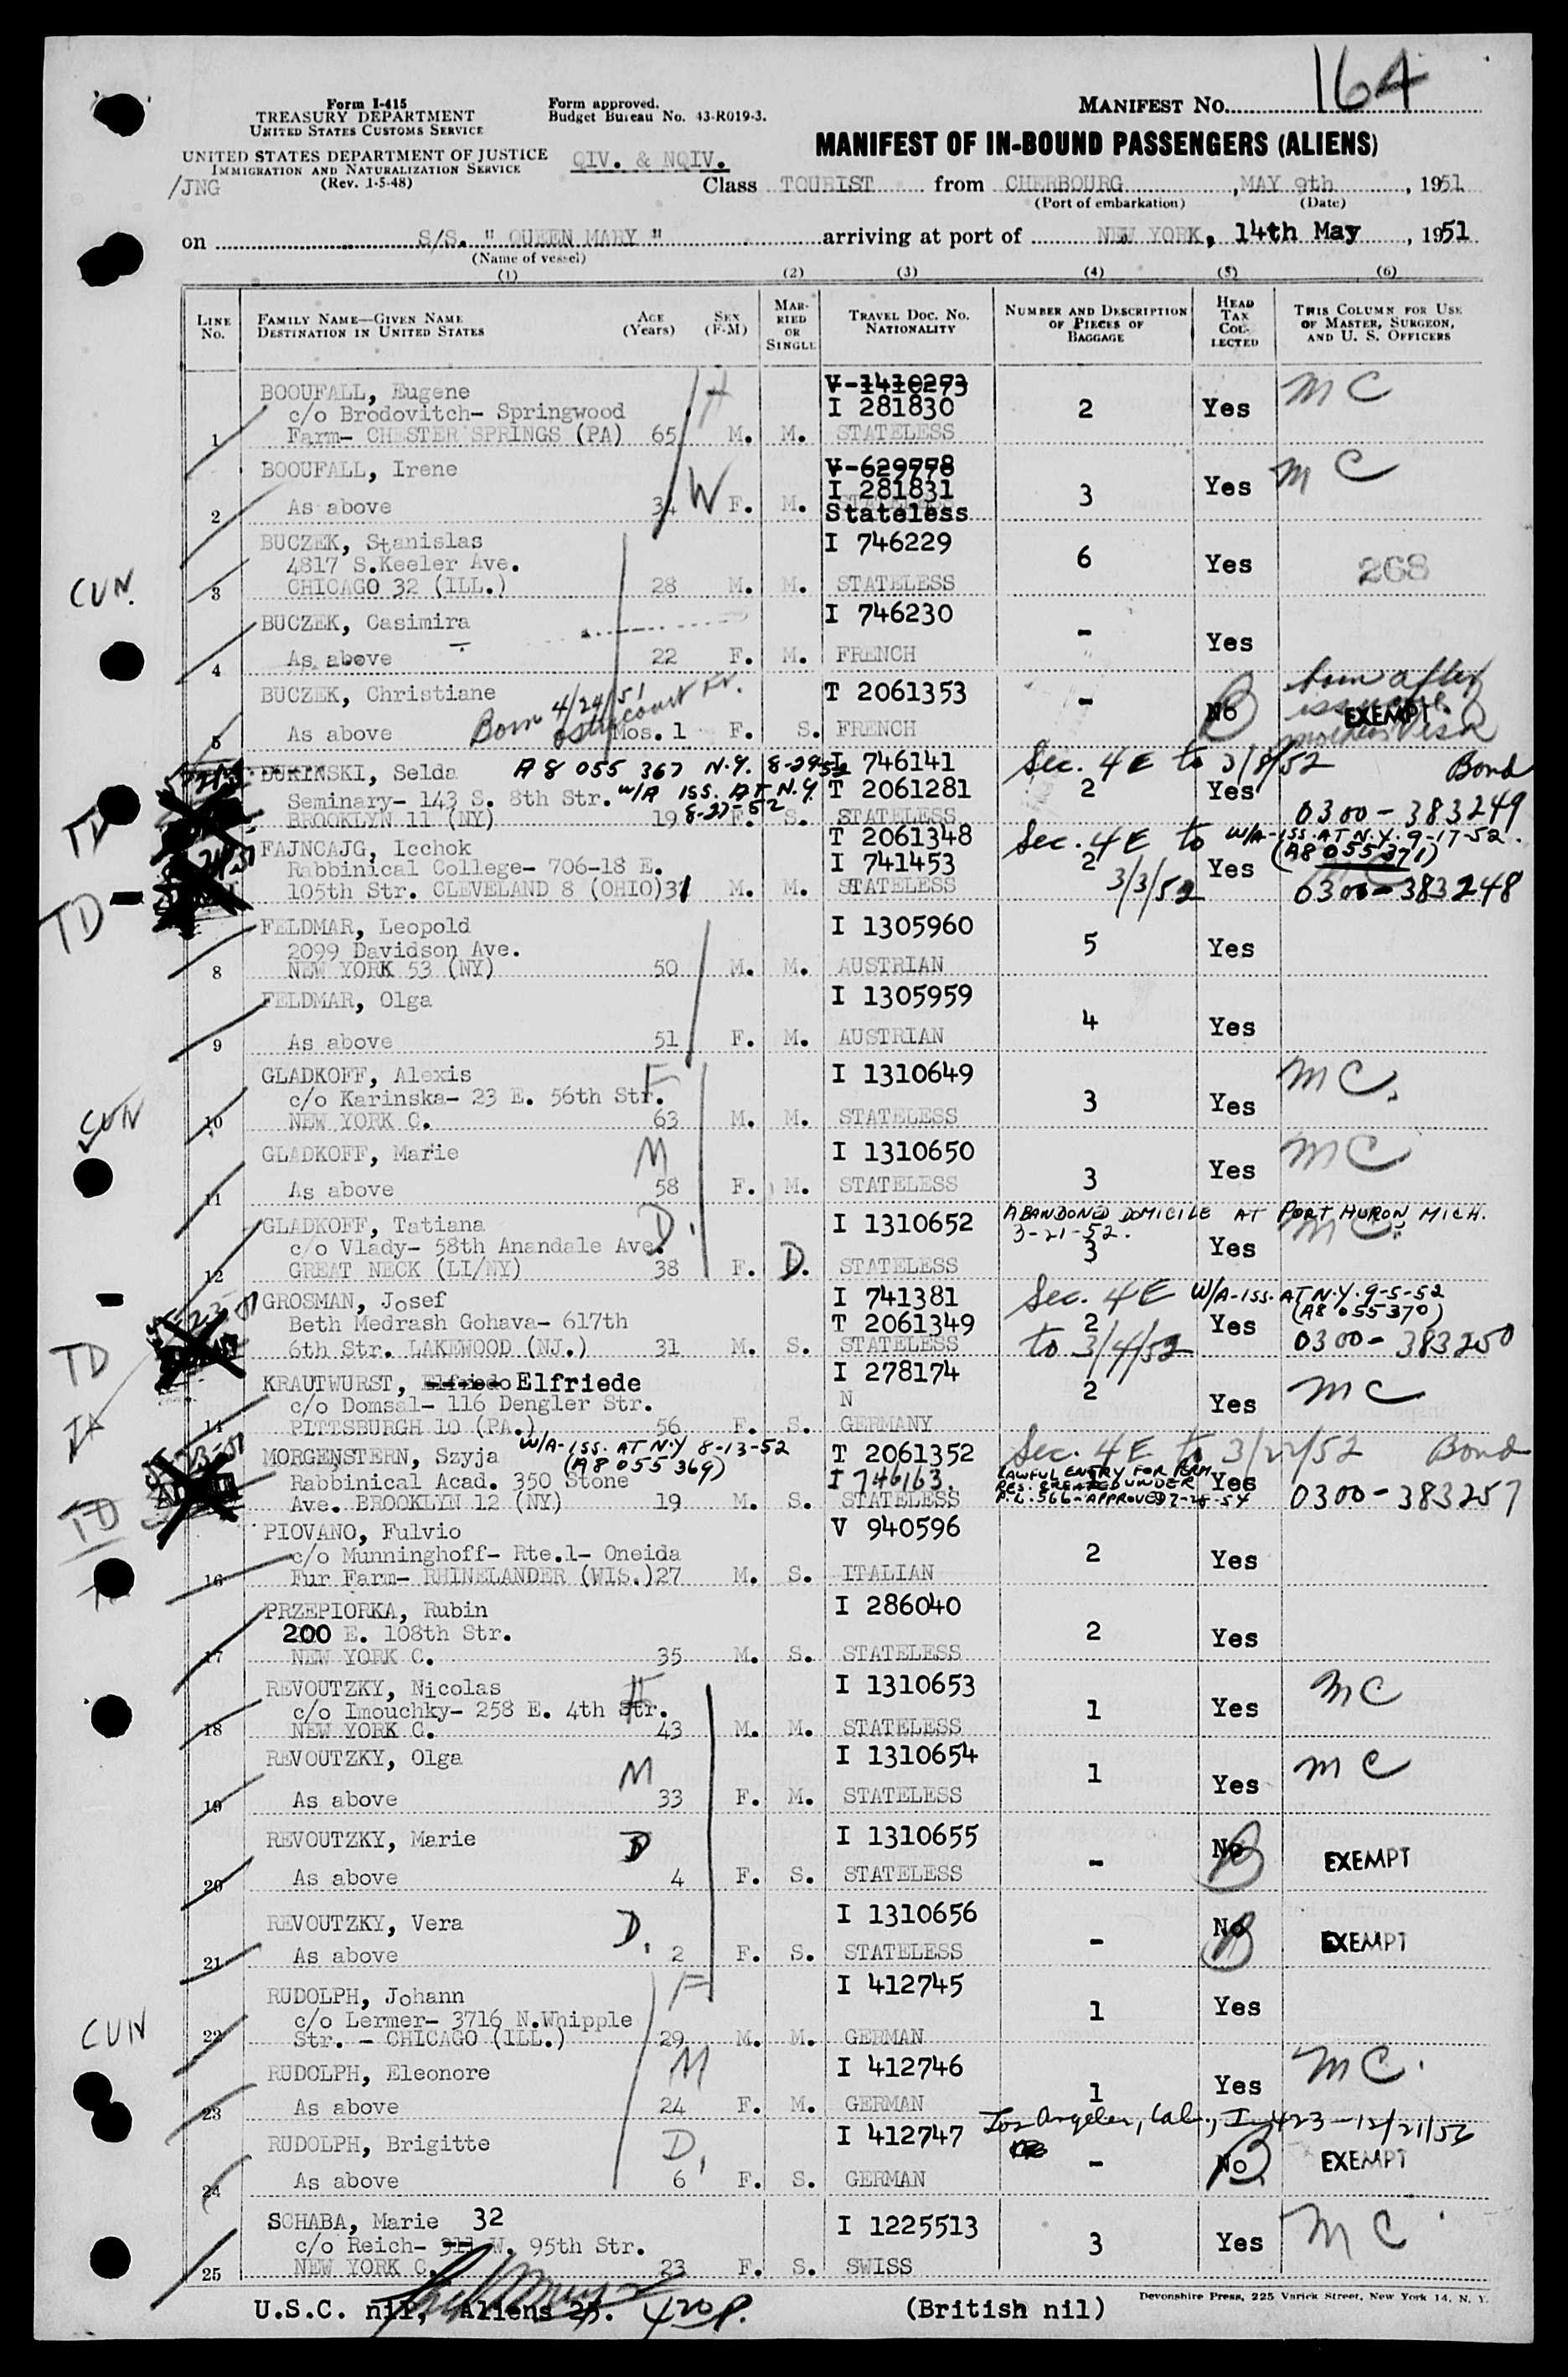 164
Form I-415
TREASURY DEPARTMENT
UNITED STATES CUSTOMS SERVICE
Form approved.
Budget Bureau No. 43-R019-3.
MANIFEST NO.
MANIFEST OF IN-BOUND PASSENGERS (ALIENS)
UNITED STATES DEPARTMENT OF JUSTICE
IMMIGRATION AND NATURALIZATION SERVICE
(Rev. 1-5-48)
/JNG
QIV. & NQIV.
Class TOURIST from CHERBOURG, MAY 9th, 1951
(Port of embarkation) (Date)
on S/S. " QUEEN MARY " arriving at port of NEW YORK, 14th May, 1951
(Name of vessel)
(1) (2) (3) (4) (5) (6)
LINE No. FAMILY NAME—GIVEN NAME DESTINATION IN UNITED STATES AGE (Years) SEX (F-M) MARRIED OR SINGLE TRAVEL DOC. NO. NATIONALITY NUMBER AND DESCRIPTION OF PIECES OF BAGGAGE HEAD TAX COLLECTED THIS COLUMN FOR USE OF MASTER, SURGEON, AND U. S. OFFICERS
BOOUFALL, Eugene H V-1410273 MC
c/o Brodovitch- Springwood I 281830 2 Yes
1 Farm- CHESTER SPRINGS (PA) 65 M. M. STATELESS
BOOUFALL, Irene W V-629778 MC
I 281831 3 Yes
2 As above 34 F. M. Stateless
BUCZEK, Stanislas I 746229 6 Yes
CUN. 4817 S.Keeler Ave. 268
3 CHICAGO 32 (ILL.) 28 M. M. STATELESS
BUCZEK, Casimira I 746230 - Yes
4 As above 22 F. M. FRENCH
BUCZEK, Christiane T 2061353 - No born after issuance mothers visa
Born 4/24/51
5 As above Mos. 1 F. S. FRENCH EXEMPT
DURINSKI, Selda A8 055 367 N.Y. 8-29-52 I 746141 Sec. 4E to 3/8/52 Bond
TD Seminary- 143 S. 8th Str. W/A ISS. AT N.Y. 8-27-52 T 2061281 2 Yes
BROOKLYN 11 (NY) 19 F. S. STATELESS 0300-383249
FAJNCAJG, Icchok T 2061348 Sec. 4E to W/A-ISS. AT N.Y. 9-17-52.
TD Rabbinical College- 706-18 E. I 741453 2 Yes (A8 055 371)
105th Str. CLEVELAND 8 (OHIO) 31 M. M. STATELESS 3/3/52 0300-383248
FELDMAR, Leopold I 1305960 5 Yes
2099 Davidson Ave.
8 NEW YORK 53 (NY) 50 M. M. AUSTRIAN
FELDMAR, Olga I 1305959 4 Yes
9 As above 51 F. M. AUSTRIAN
GLADKOFF, Alexis F I 1310649 MC.
CUN c/o Karinska- 23 E. 56th Str. 3 Yes
10 NEW YORK C. 63 M. M. STATELESS
GLADKOFF, Marie M I 1310650 3 Yes MC
11 As above 58 F. M. STATELESS
GLADKOFF, Tatiana D. I 1310652 ABANDONED DOMICILE AT PORT HURON MICH. 3-21-52.
c/o Vlady- 58th Anandale Ave. 3 Yes MC.
12 GREAT NECK (LI/NY) 38 F. D. STATELESS
GROSMAN, Josef I 741381 Sec. 4E W/A-ISS. AT N.Y. 9-5-52
Beth Medrash Gohava- 617th T 2061349 2 Yes (A8 055370)
TD 6th Str. LAKEWOOD (NJ.) 31 M. S. STATELESS to 3/4/52 0300-383250
KRAUTWURST, Elfriedo Elfriede I 278174 2 Yes MC
c/o Domsal- 116 Dengler Str. N
14 PITTSBURGH 10 (PA.) 56 F. S. GERMANY
MORGENSTERN, Szyja W/A-ISS. AT N.Y 8-13-52 (A8 055 369) T 2061352 Sec. 4E to 3/22/52 Bond
TD Rabbinical Acad. 350 Stone I 746163. LAWFUL ENTRY FOR PERM RES. CREATED UNDER Yes
Ave. BROOKLYN 12 (NY) 19 M. S. STATELESS P.L. 566-APPROVED 7-28-54 0300-383257
PIOVANO, Fulvio V 940596 2 Yes
c/o Munninghoff- Rte.1- Oneida
16 Fur Farm- RHINELANDER (WIS.) 27 M. S. ITALIAN
PRZEPIORKA, Rubin I 286040 2 Yes
200 E. 108th Str.
17 NEW YORK C. 35 M. S. STATELESS
REVOUTZKY, Nicolas F I 1310653 1 Yes MC
c/o Imouchky- 258 E. 4th Str.
18 NEW YORK C. 43 M. M. STATELESS
REVOUTZKY, Olga M I 1310654 1 Yes MC
19 As above 33 F. M. STATELESS
REVOUTZKY, Marie D I 1310655 - No EXEMPT
20 As above 4 F. S. STATELESS
REVOUTZKY, Vera D. I 1310656 - No EXEMPT
21 As above 2 F. S. STATELESS
RUDOLPH, Johann F I 412745 1 Yes
CUN c/o Lermer- 3716 N.Whipple
22 Str. - CHICAGO (ILL.) 29 M. M. GERMAN
RUDOLPH, Eleonore M I 412746 1 Yes MC.
23 As above 24 F. M. GERMAN
RUDOLPH, Brigitte D. I 412747 Los Angeles, Cal., I-423-12/21/56
24 As above 6 F. S. GERMAN - No EXEMPT
SCHABA, Marie 32 I 1225513 3 Yes MC
c/o Reich- 311 W. 95th Str.
25 NEW YORK C. 23 F. S. SWISS
U.S.C. nil, Aliens 25. 420P. (British nil)
Devonshire Press, 225 Varick Street, New York 14, N. Y.